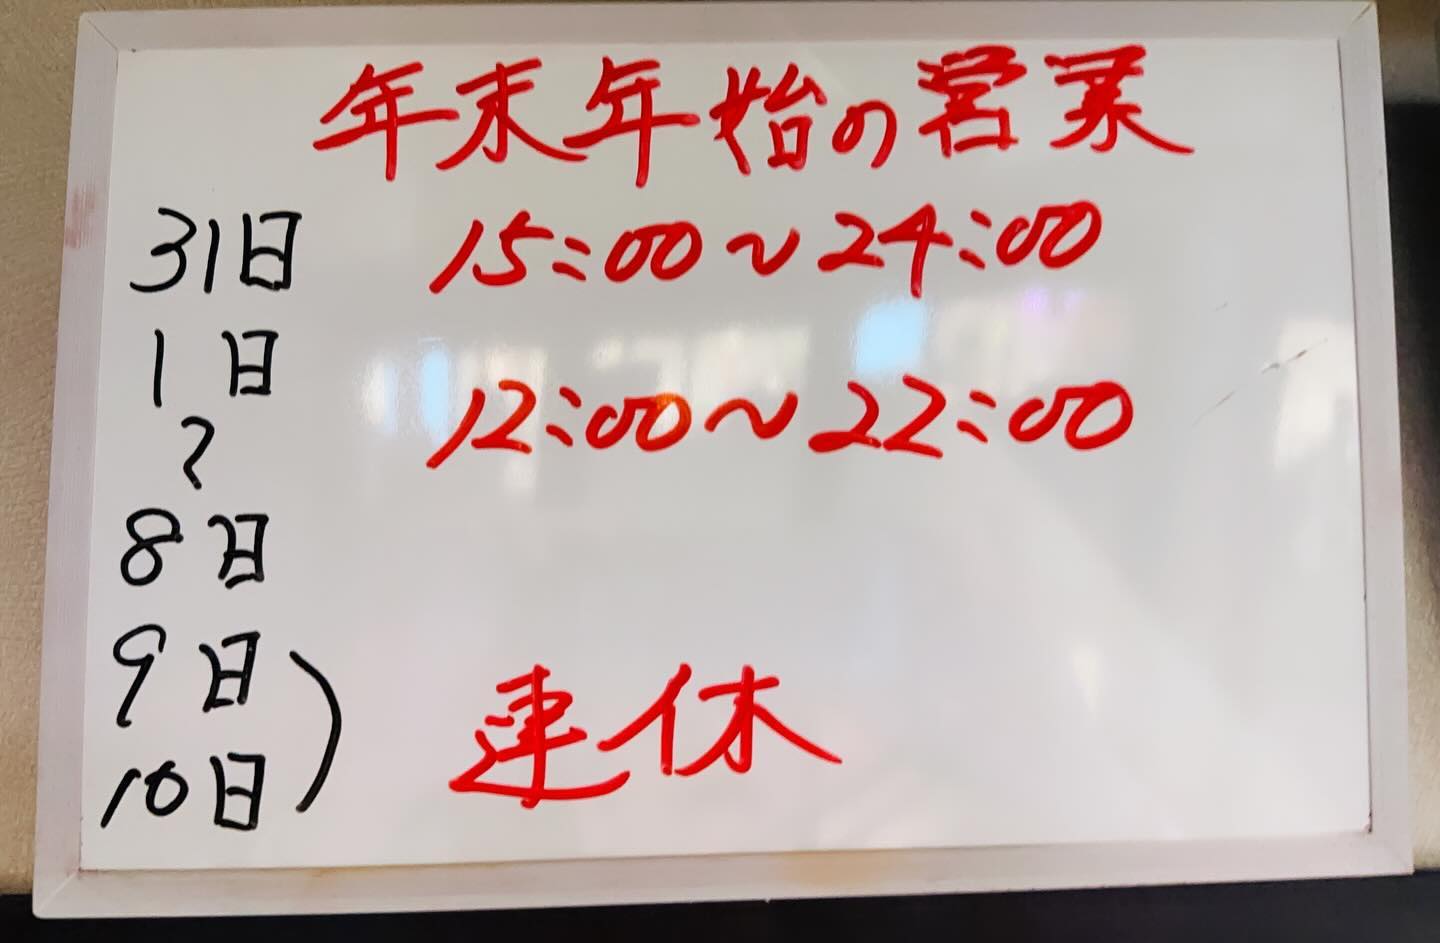 年末年始の営業
31日 15:00~24:00
1日 12:00~22:00
〜
8日
9日
10日 連休